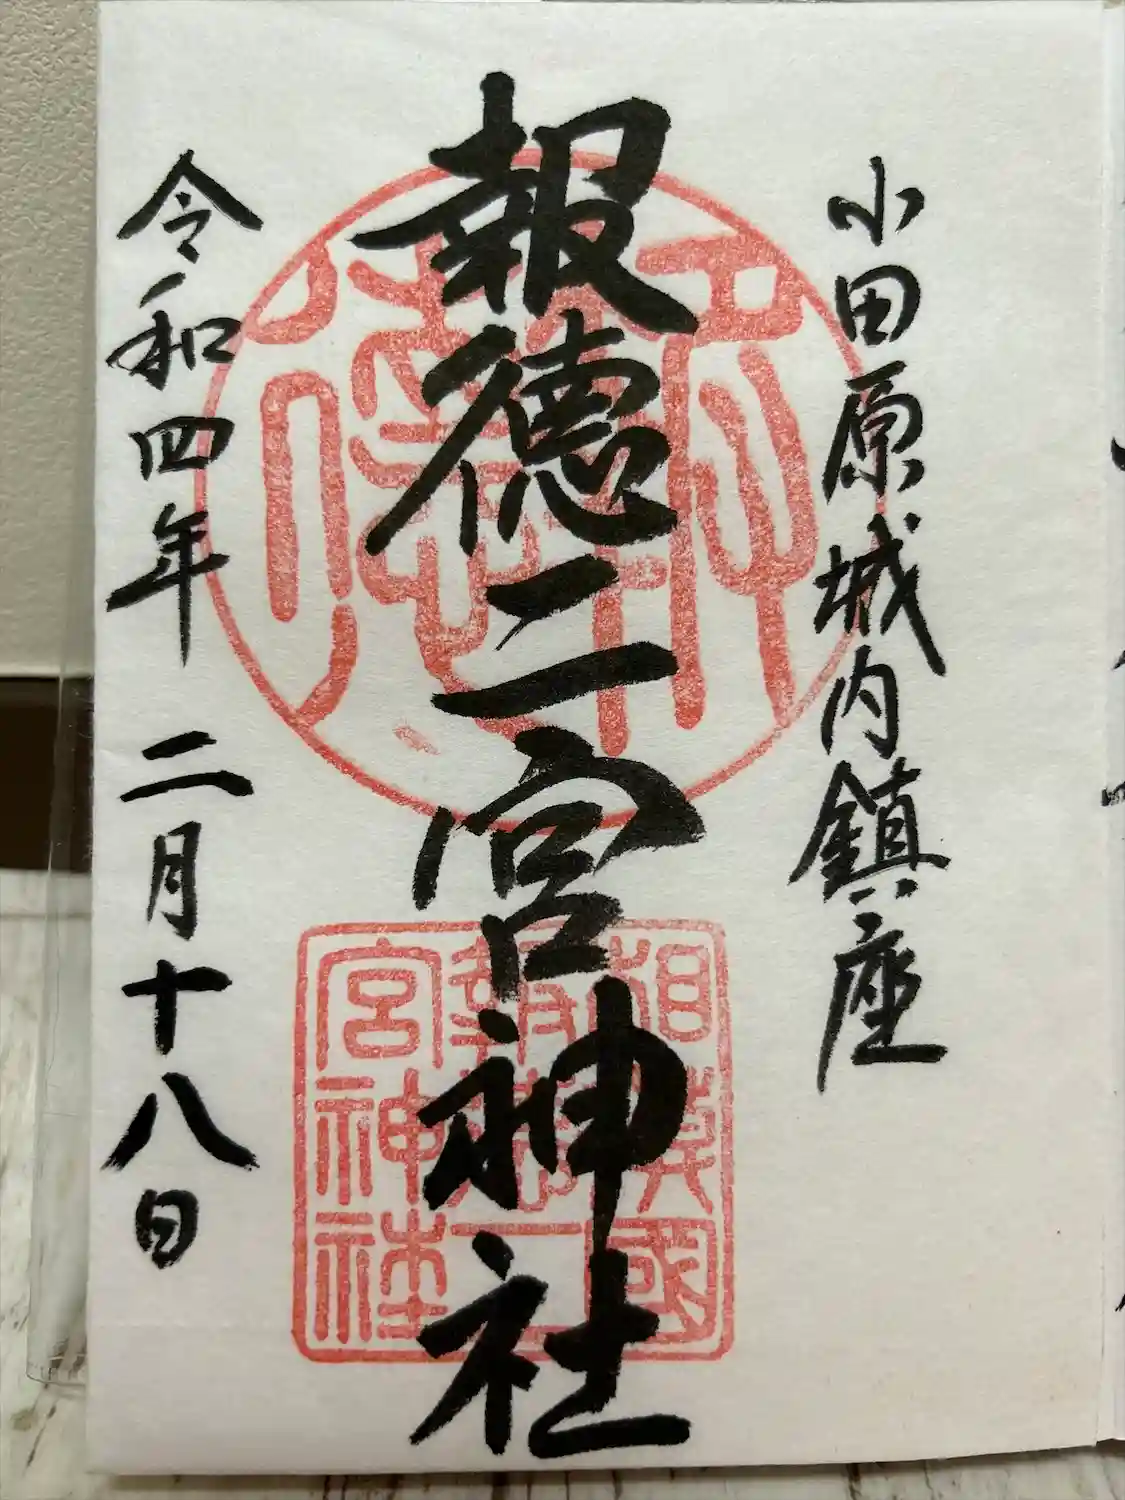 小田原城内鎮座
報徳二宮神社
令和四年 二月十八日
相模國
報徳二
宮神社